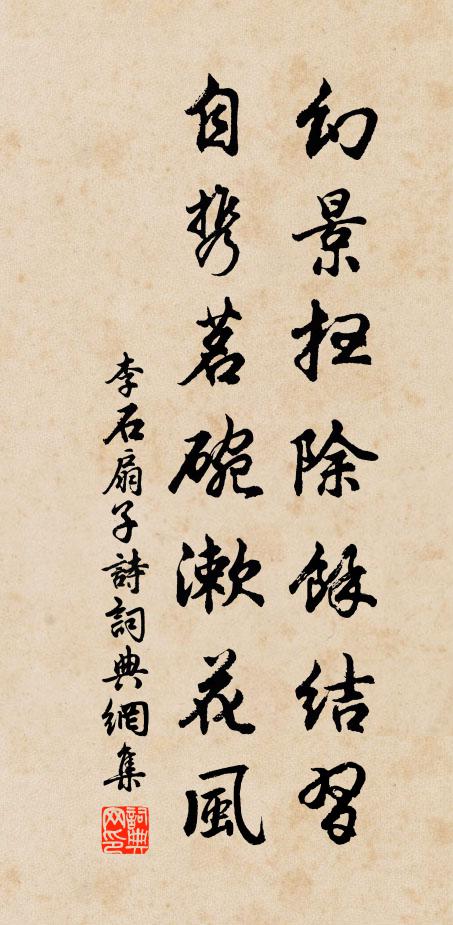 幻景扫除餘結習
自携茗碗漱花風
李石扇子詩詞典網集
詞典網印